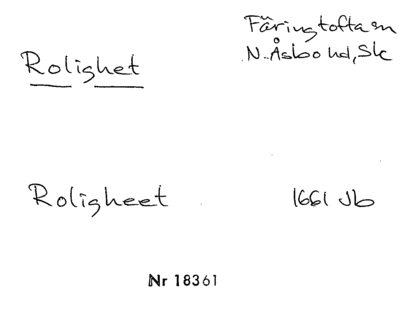 Rolighet
Färingtofta sn
N. Åsbo hd, Sk
Roligheet
1661 Jb
Nr 18361